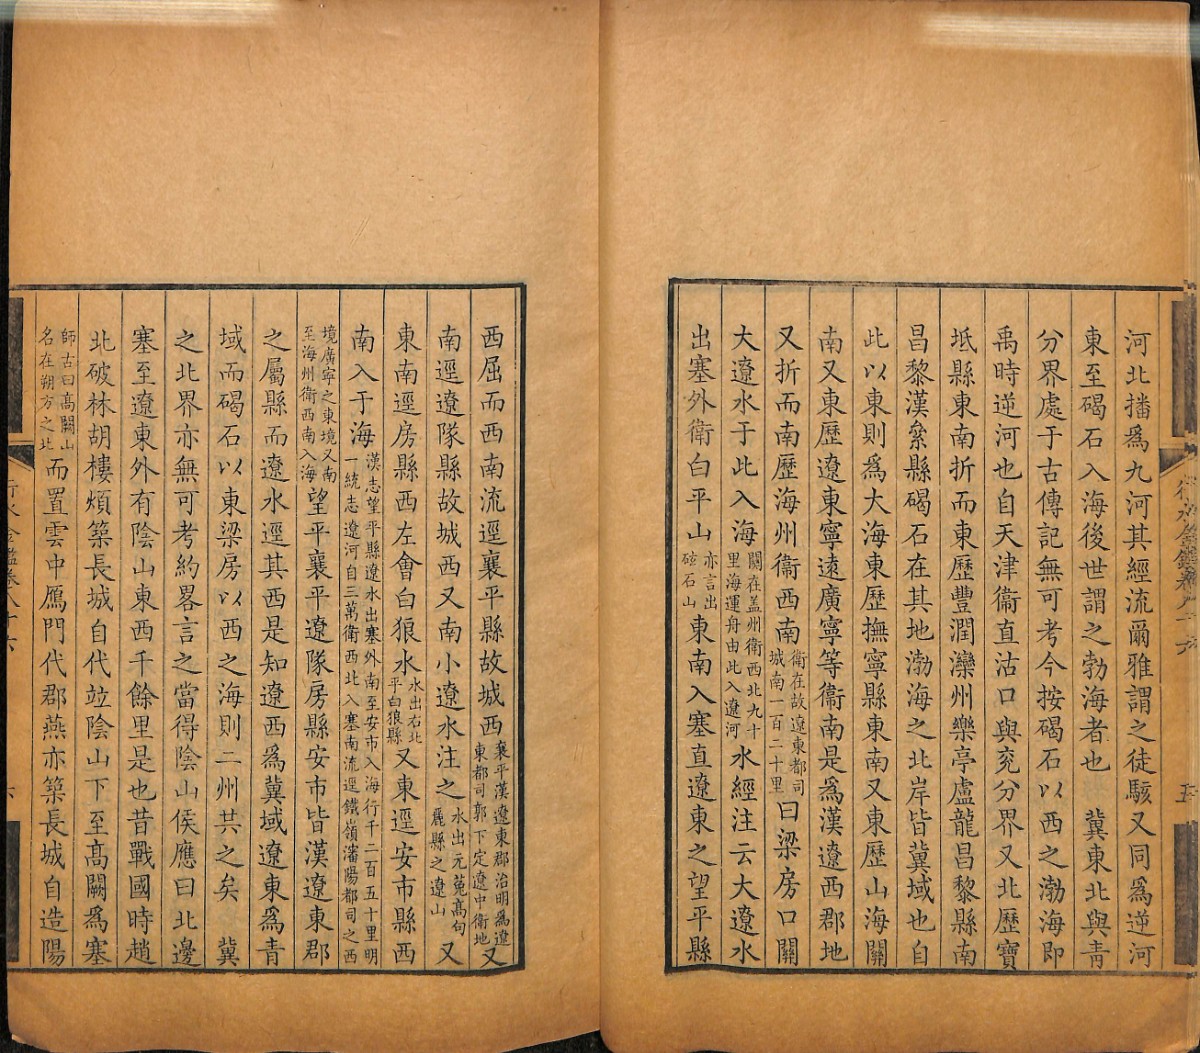 河北播爲九河其經流爾雅謂之徒駭又同爲逆河
東至碣石入海後世謂之勃海者也　冀東北與靑
分界處于古傳記無可考今按碣石以西之渤海即
禹時逆河也自天津衞直沽口與兖分界又北歷寶
坻縣東南折而東歷豐潤灤州樂亭盧龍昌黎縣南
昌黎漢絫縣碣石在其地渤海之北岸皆冀域也自
此以東則爲大海東歷撫寧縣東南又東歷山海關
南又東歷遼東寧遠廣寧等衞南是爲漢遼西郡地
又折而南歷海州衞西南衞在故遼東都司城南一百二十里曰梁房口關
大遼水于此入海關在盖州衞西北九十里海運舟由此入遼河水經注云大遼水
出塞外衞白平山亦言出砥石山東南入塞直遼東之望平縣
行水金鑑卷八十六
五
西屈而西南流逕襄平縣故城西襄平漢遼東郡治明爲遼東都司郭下定遼中衞地又
南逕遼隊縣故城西又南小遼水注之水出元菟高句麗縣之遼山又
東南逕房縣西左會白狼水水出右北平白狼縣又東逕安市縣西
南入于海漢志望平縣遼水出塞外南至安市入海行千二百五十里明一統志遼河自三萬衞西北入塞南流逕鐵嶺瀋陽都司之西
境廣寧之東境又南至海州衞西南入海望平襄平遼隊房縣安市皆漢遼東郡
之屬縣而遼水逕其西是知遼西爲冀域遼東爲靑
域而碣石以東梁房以西之海則二州共之矣　冀
之北界亦無可考約畧言之當得陰山侯應曰北邊
塞至遼東外有陰山東西千餘里是也昔戰國時趙
北破林胡樓煩築長城自代竝陰山下至高闕爲塞
師古曰高闕山名在朔方之北而置雲中鴈門代郡燕亦築長城自造陽
行水金鑑卷八十六
六